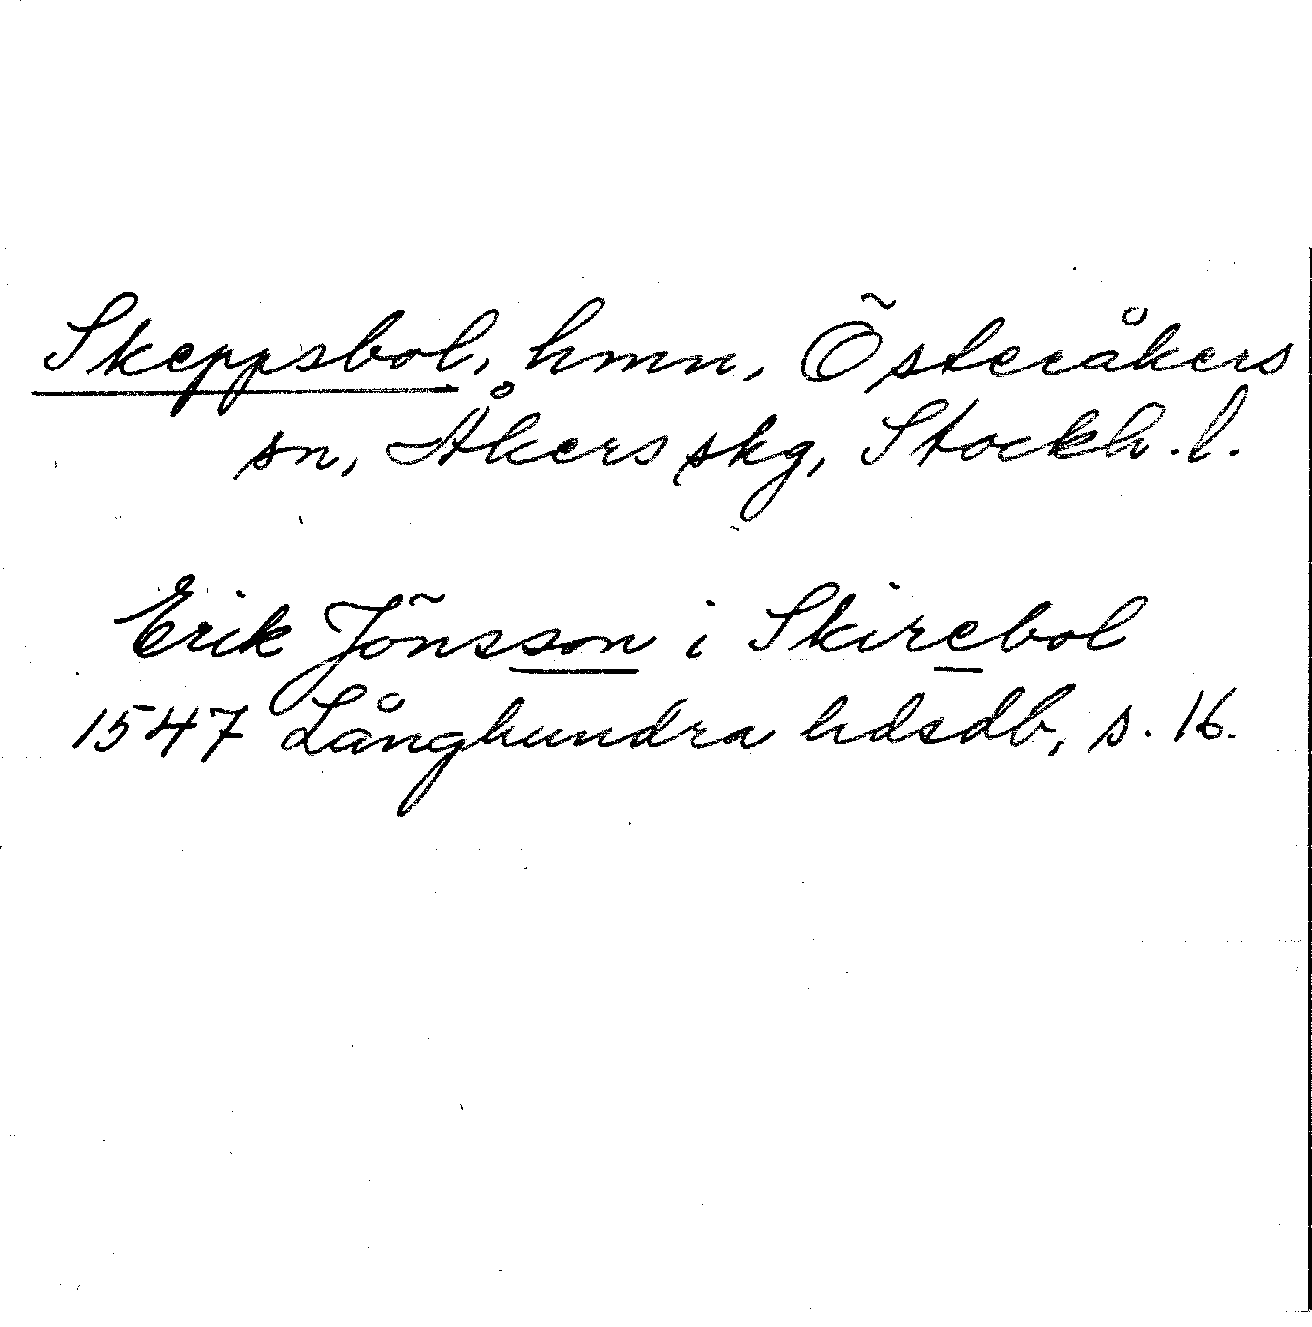 Skeppsbol, hmn, Österåkers
sn, Åkers skg, Stockh. l.
Erik Jönsson i Skirebol
1547 Långhundra hdsdb, s. 16.